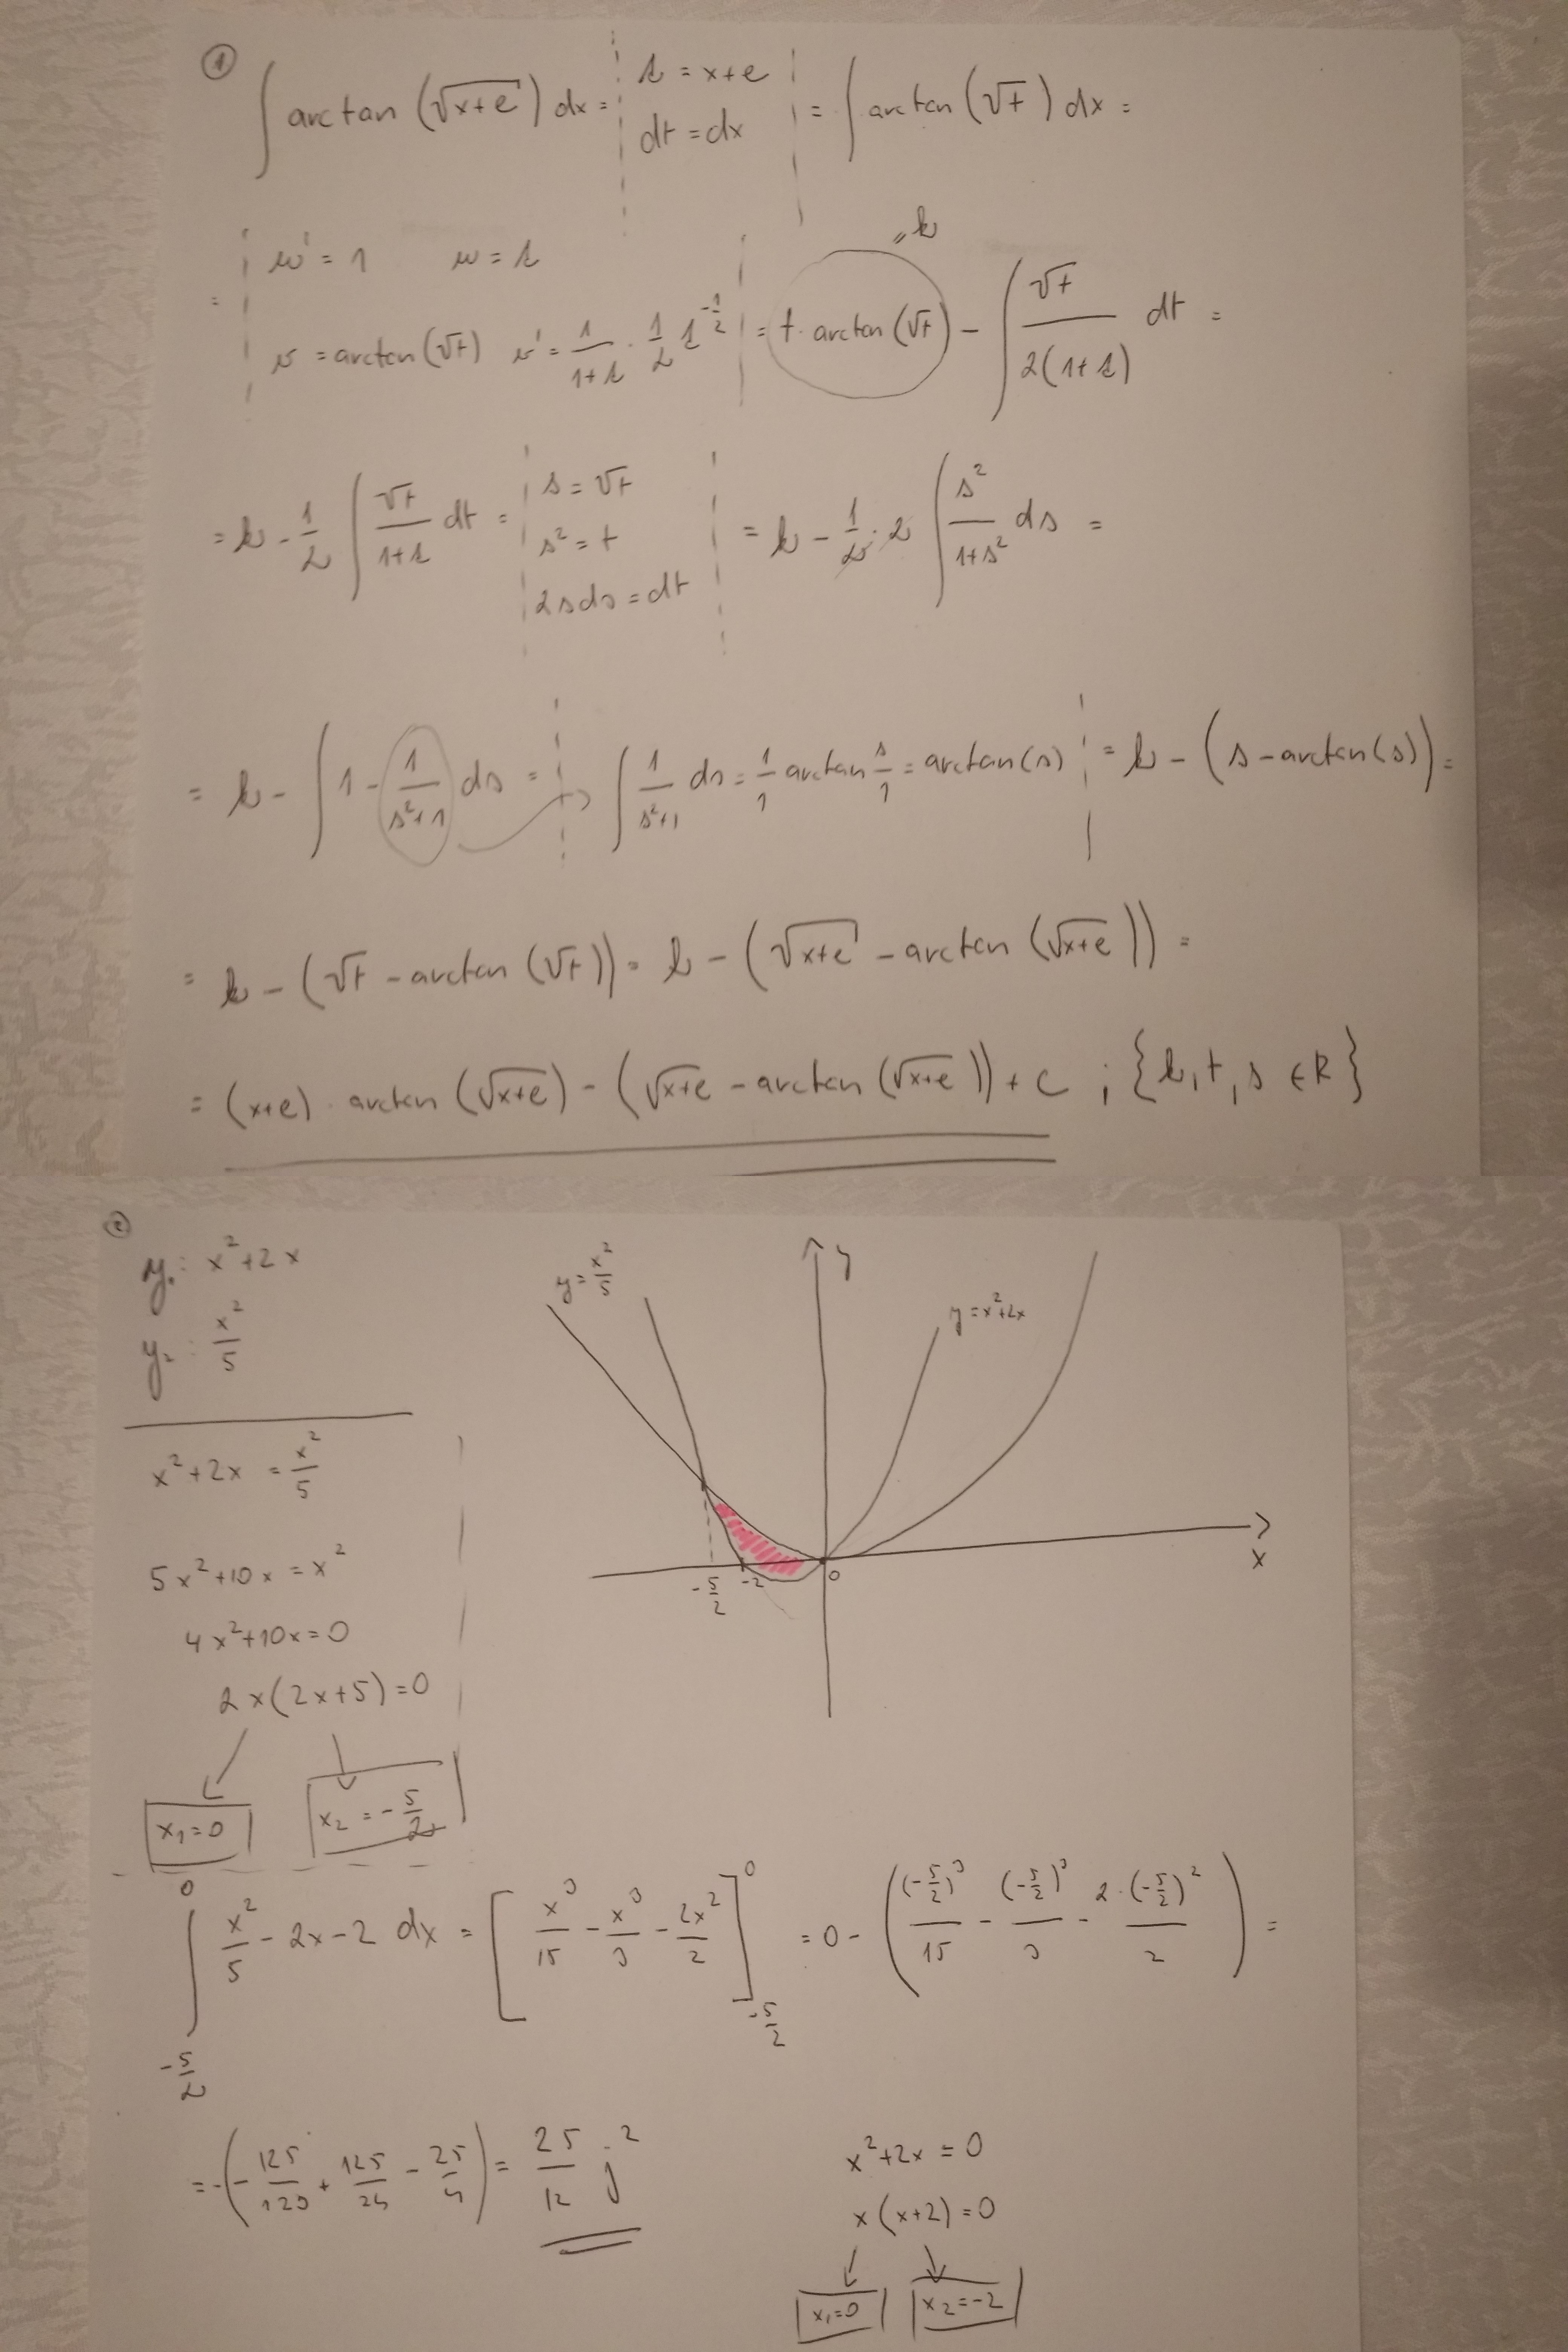 ①
∫ arctan (√x+e) dx = | t = x+e dt = dx | = ∫ arctan (√t) dx =
= | u' = 1 u = t v = arctan(√t) v' = 1/(1+t) · 1/2 t^(-1/2) | = t · arctan(√t) - ∫ √t/(2(1+t)) dt =
"k
= k - 1/2 ∫ √t/(1+t) dt = | s = √t s² = t 2sds = dt | = k - 1/2 · 2 ∫ s²/(1+s²) ds =
= k - ∫ 1 - 1/(s²+1) ds = | ∫ 1/(s²+1) ds = 1/1 arctan s/1 = arctan(s) | = k - (s - arctan(s)) =
= k - (√t - arctan (√t)) = k - (√x+e - arctan (√x+e)) =
= (x+e) · arctan (√x+e) - (√x+e - arctan (√x+e)) + C ; {k, t, s ∈ R}
②
y₁: x²+2x
y₂: x²/5
x²+2x = x²/5
5x²+10x = x²
4x²+10x = 0
2x(2x+5) = 0
x₁=0 x₂ = -5/2
y = x²/5
y
y = x²+2x
x
-5/2 -2 0
∫_(-5/2)^0 x²/5 - 2x - 2 dx = [x³/15 - x³/3 - 2x²/2]_(-5/2)^0 = 0 - ((-5/2)³/15 - (-5/2)³/3 - 2·(-5/2)²/2) =
= -(-125/120 + 125/24 - 25/4) = 25/12 j²
x²+2x = 0
x(x+2) = 0
x₁=0 x₂=-2